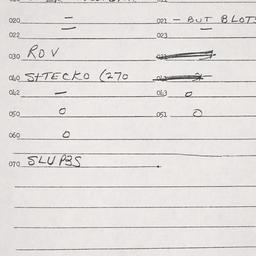 020 — 021 - BUT BLOTS
022 — 023 —
030 ROV
040 STTECKO (270
042 — 043 0
050 0 051 0
060 0
070 SLUPBS